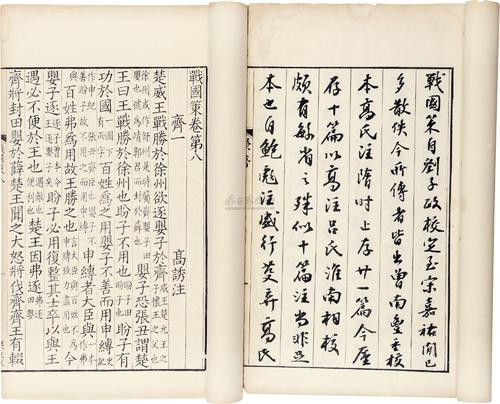 戰國策自劉子政校定至宋嘉祐閒已
多散佚今所傳者皆出曾南豐重校
本高氏注隋時止存廿一篇今廑
存十篇以高注呂氏淮南相校
頗有繇省之殊似十篇注尚非足
本也自鮑彪注盛行莫弃高氏
戰國策卷第八
齊一 高誘注
楚威王戰勝於徐州欲逐嬰子於齊威王楚元王之
徐州或作舒州是時屬齊嬰子田嬰也號為靖郭君而封於薛也嬰子恐張丑謂楚
王曰王戰勝於徐州也盼子不用也盼子有
功於國百姓為之用嬰子不善而用申縛
申縛者大臣與
百姓弗為用故王勝之也
嬰子逐盼子必用復整其士卒以與王
遇必不便於王也楚王因弗逐
齊將封田嬰於薛楚王聞之大怒將伐齊齊王有輟